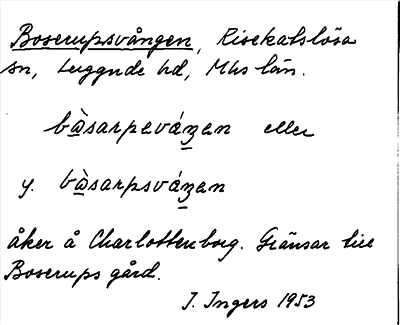 Boserupsvången, Risekatslösa
sn, Luggude hd, Mhs län.
bòsarpeváŋen eller
y. bòsarpsváŋen
åker å Charlottenborg. Gränsar till
Boserups gård.
I. Ingers 1953